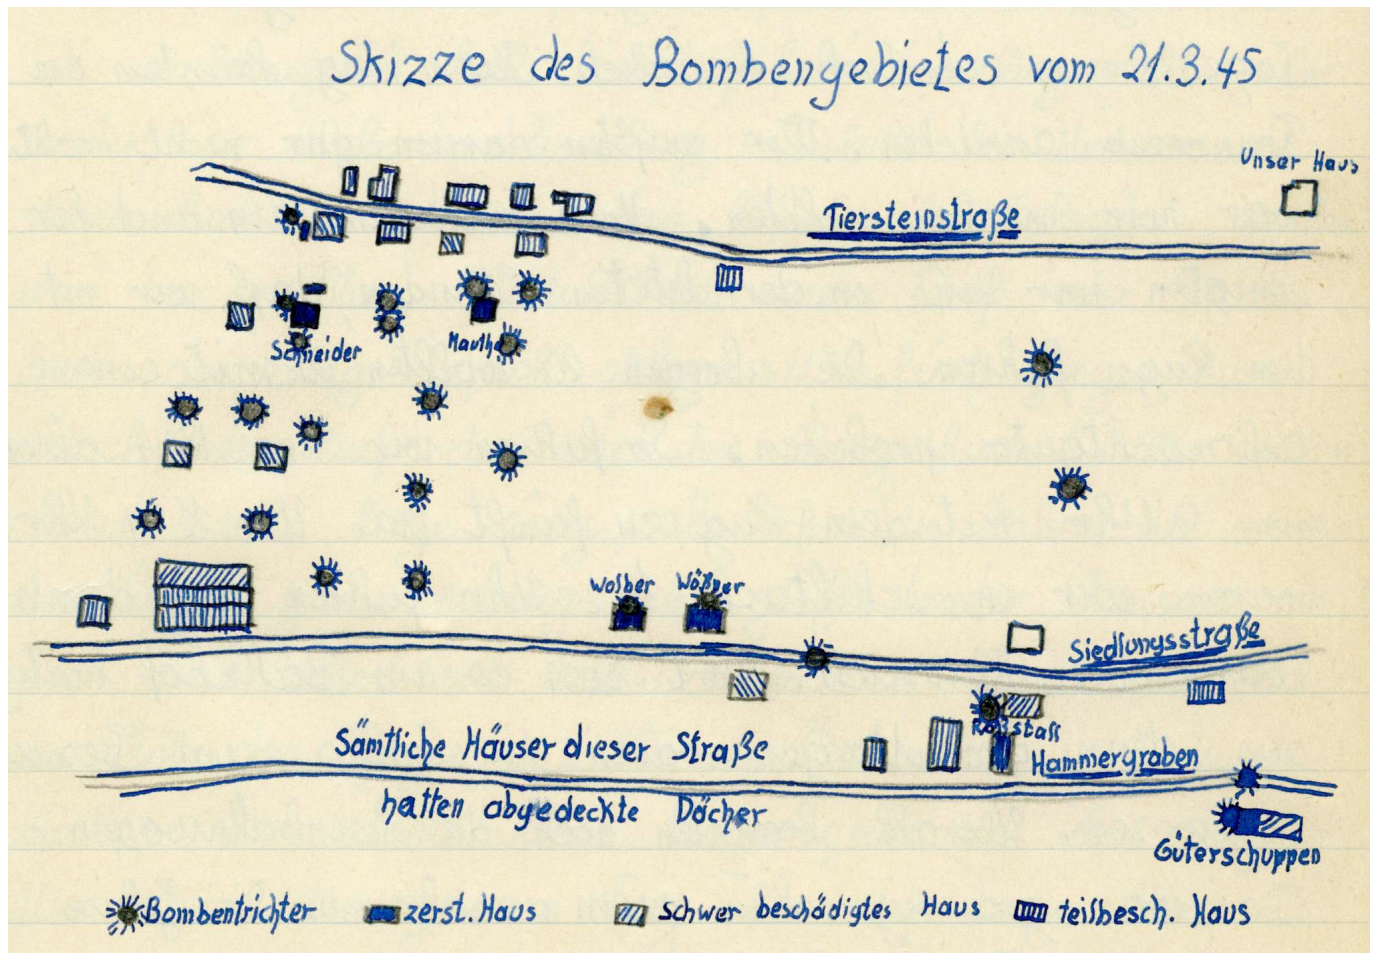 Skizze des Bombengebietes vom 21.3.45
Unser Haus
Tiersteinstraße
Schneider
Mauthe
Wolber
Wößner
Siedlungsstraße
Roßstall
Sämtliche Häuser dieser Straße
Hammergraben
hatten abgedeckte Dächer
Güterschuppen
Bombentrichter
zerst. Haus
Schwer beschädigtes Haus
teilbesch. Haus